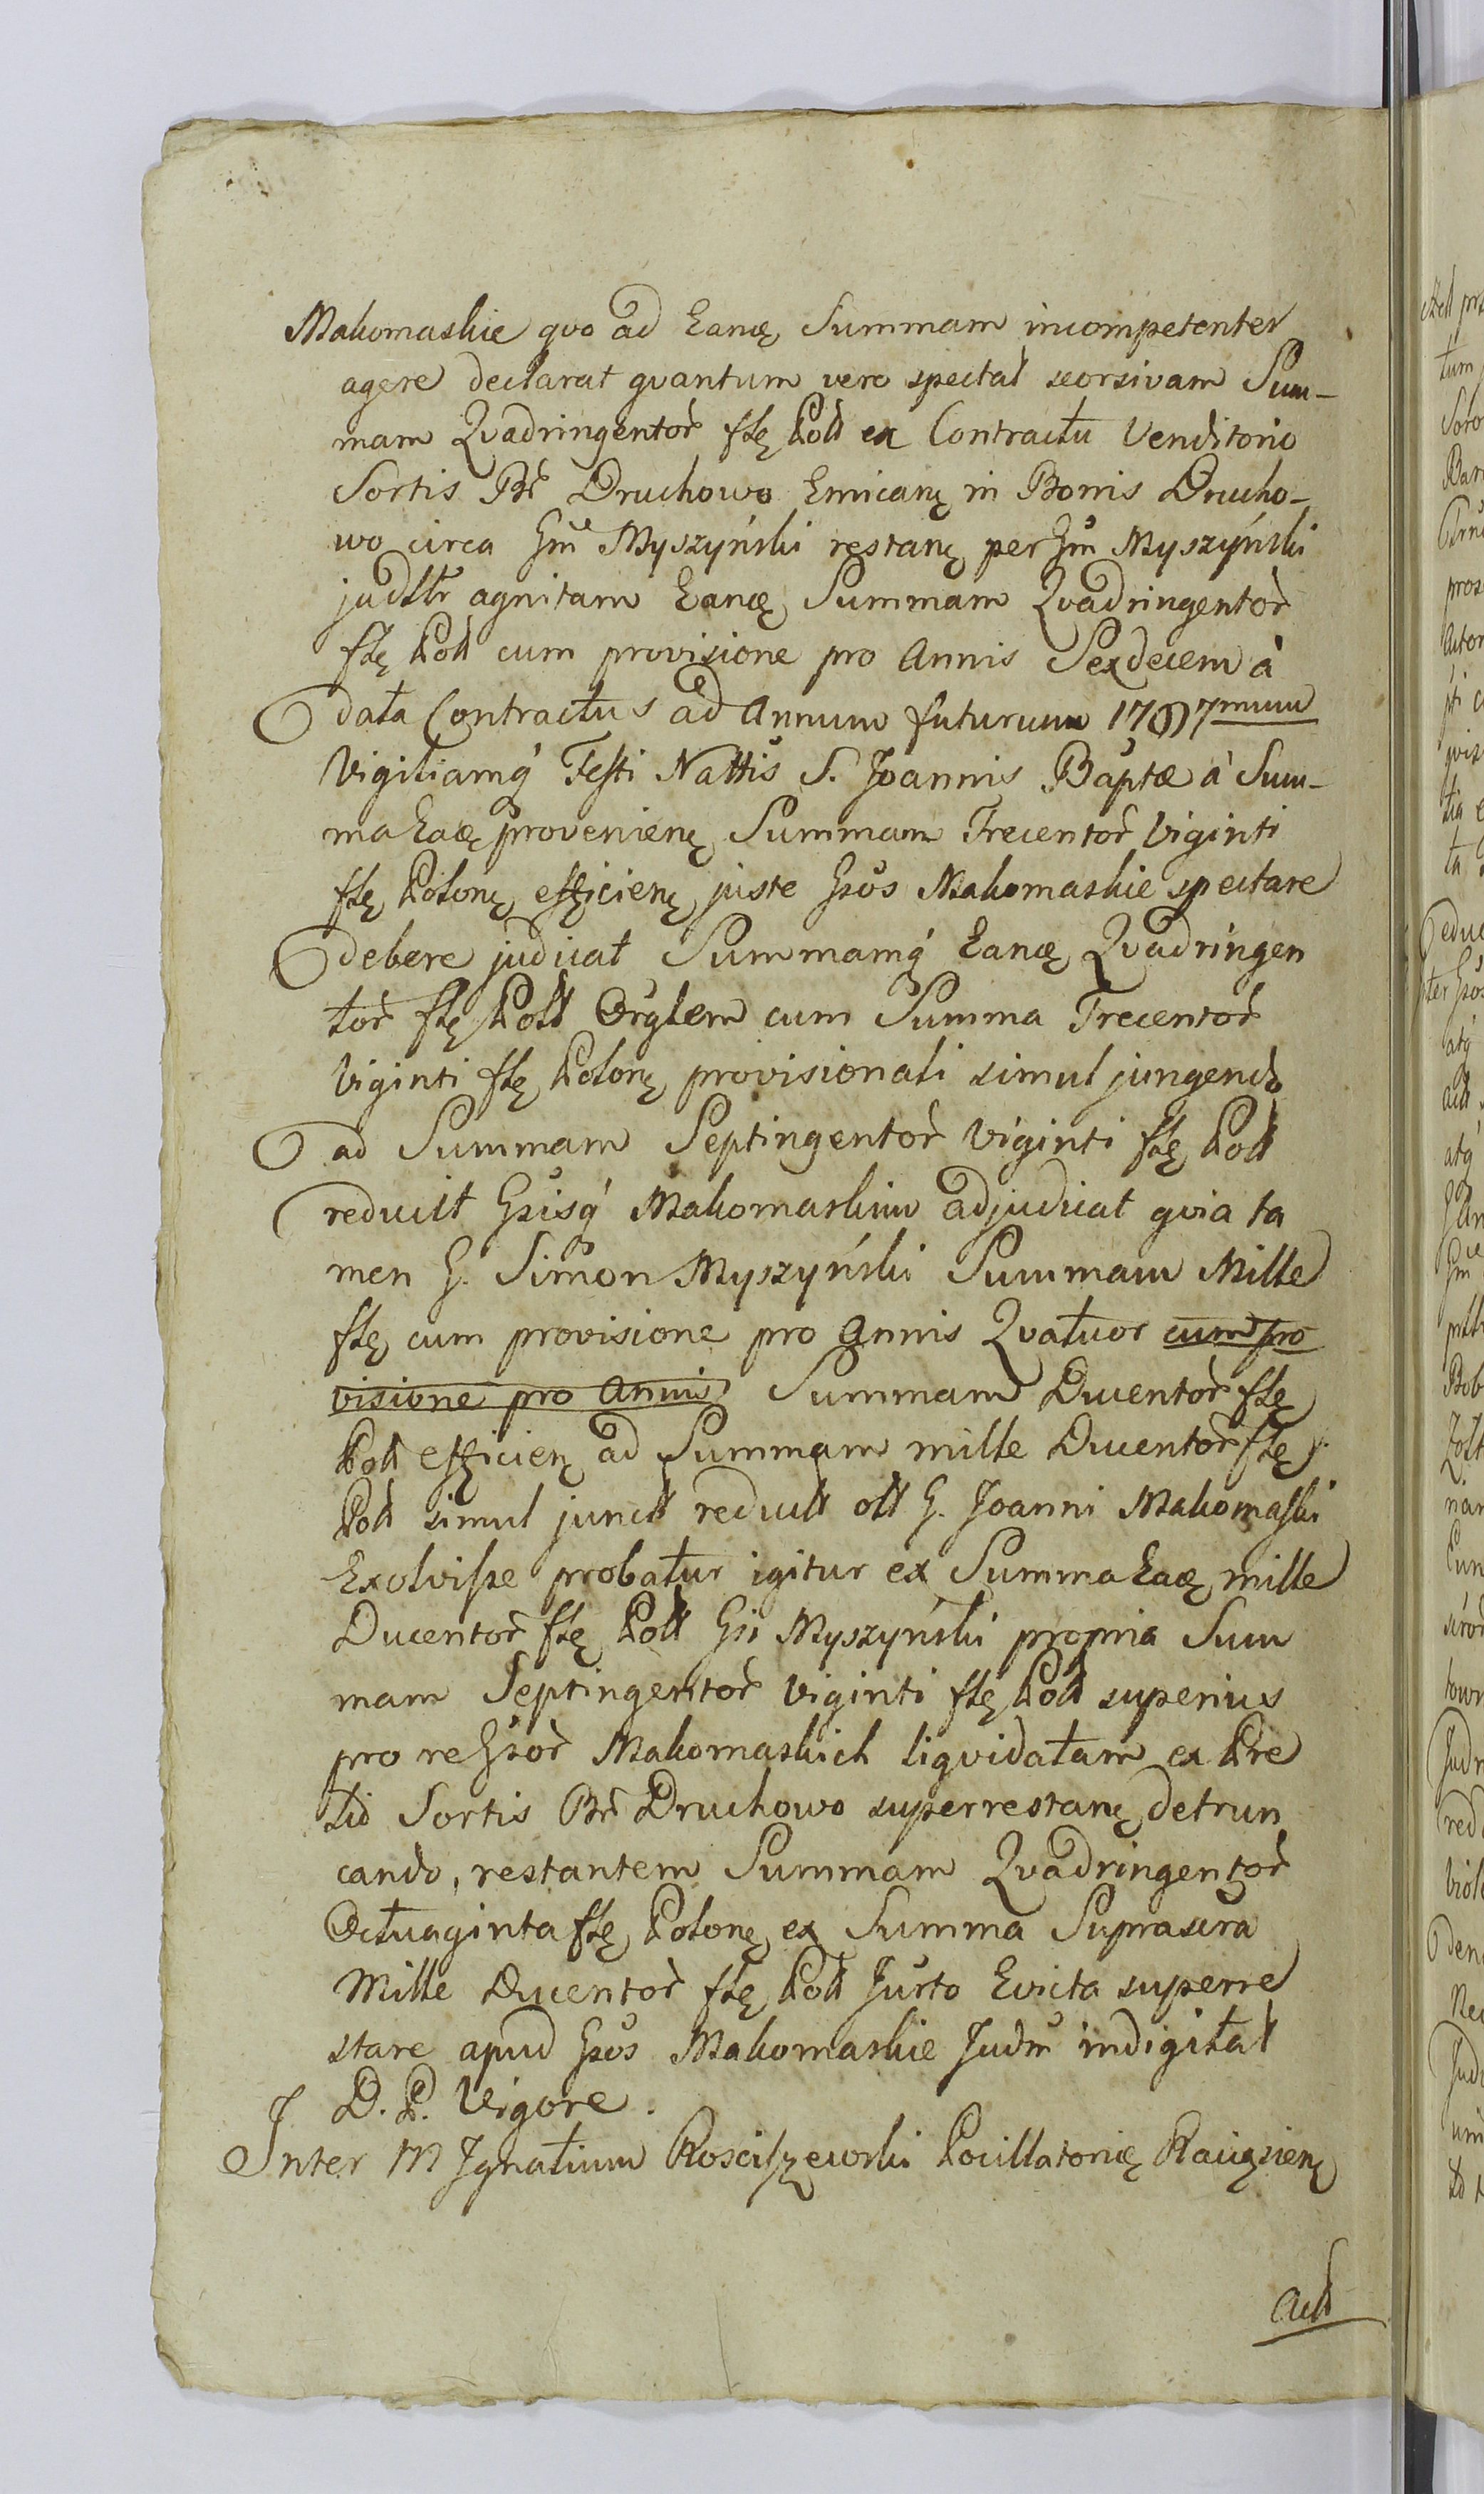 Makomaskie qvo ad Eanę Summam incompetenter
agere declarat qvantum vero spectat seorsivam Sum-
mam Qvadringentor̃ flę Poll ex Contractu Venditorio
Sortis Br̃ Druchowo Emicanę in Bonis Drucho-
wo circa Gm̃ Myszyński restanę per Gm̃ Myszyński
judttr agnitam Eanę Summam Qvadringentor̃
flę Poll cum provisione pro Annis Sexdecem à
data Contractus ad Annum futurum 1797mum
Vigiliamq́ Festi Nattis S. Joannis Baptæ à Sum-
ma Eaę provenienę Summam Trecentor̃ Viginti
flę Polonę efficienę juste Gsos Makomaskie spectare
debere judicat Summamq́ Eanę Qvadringen
tor̃ flę Poll Orglem cum Summa Trecentor̃
Viginti flę Polonę provisionali simul jungendo
ad Summam Septingentor̃ Viginti flę Poll
reducit Gsisq́ Makomaskim adjudicat qvia ta
men G. Simon Myszyński Summam Mille
flę cum provisione pro Annis Qvatuor cum pro
visione pro Annis Summam Ducentor̃ flę
Poll efficienę ad Summam mille Ducentor̃ flę
Poll simul junctt reductt oll G. Joanni Makomaski
Exolvisse probatur igitur ex Summa Eaę mille
Ducentor̃ flę Poll Gsi Myszyński propria Sum
mam Septingentor̃ Viginti flę Poll superius
pro re Gsor̃ Makomaskich liqvidatam ex Pre
tio Sortis Br̃ Druchowo superrestanę detrun
cando, restantem Summam Qvadringentor̃
Octuaginta flę Polonę ex Summa Suprascra
Mille Ducentor̃ flę Poll Jurto Evicta superre
stare apud Gsos Makomaskie Judm̃ indigitat
D. P. Vigore.
Inter M Ignatium Kosciszewski Pocillatorię Raiązienę
Actt